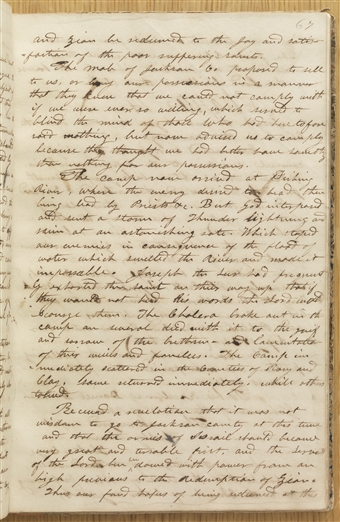 67
and Zion be redeemed to the joy and satis-
faction of the poor suffering saints.
The mob of Jackson Co. proposed to sell
to us, or buy our possessions in a manner
that they knew that we could not comply with
if we were ever so willing, which served to
blind the mind of those who had heretofore
said nothing, but now advised us to comply
because they thought we had better have scarcely
than nothing for our possessions.
The camp now arrived at Fishing
River, where the enemy desired to
being led by Priests &c. But God interposed
and sent a storm of Thunder lightning and
rain at an astonishing rate. Which stoped
our enemies in consequence of the flood of
water which swelled the River and made it
impassable. Joseph the Seer had previous-
ly exhorted the saints on their way up that if
they would not heed his words the Lord would
scourge them. The Cholera broke out in the
camp and several died with it to the grief
and sorrow of the brethren and lamentation
of their wives and families. The Camp im-
mediately scattered in the Counties of Ray and
Clay, some returned immediately, whilst others
tarried.
Received a revelation that it was not
wisdom to go to Jackson county at this time
and that the armies of Israel should become
very great and terrable first, and the servants
of the Lord endowed with power from on
high previous to the redemption of Zion.
Thus our fond hopes of being redeemed at the